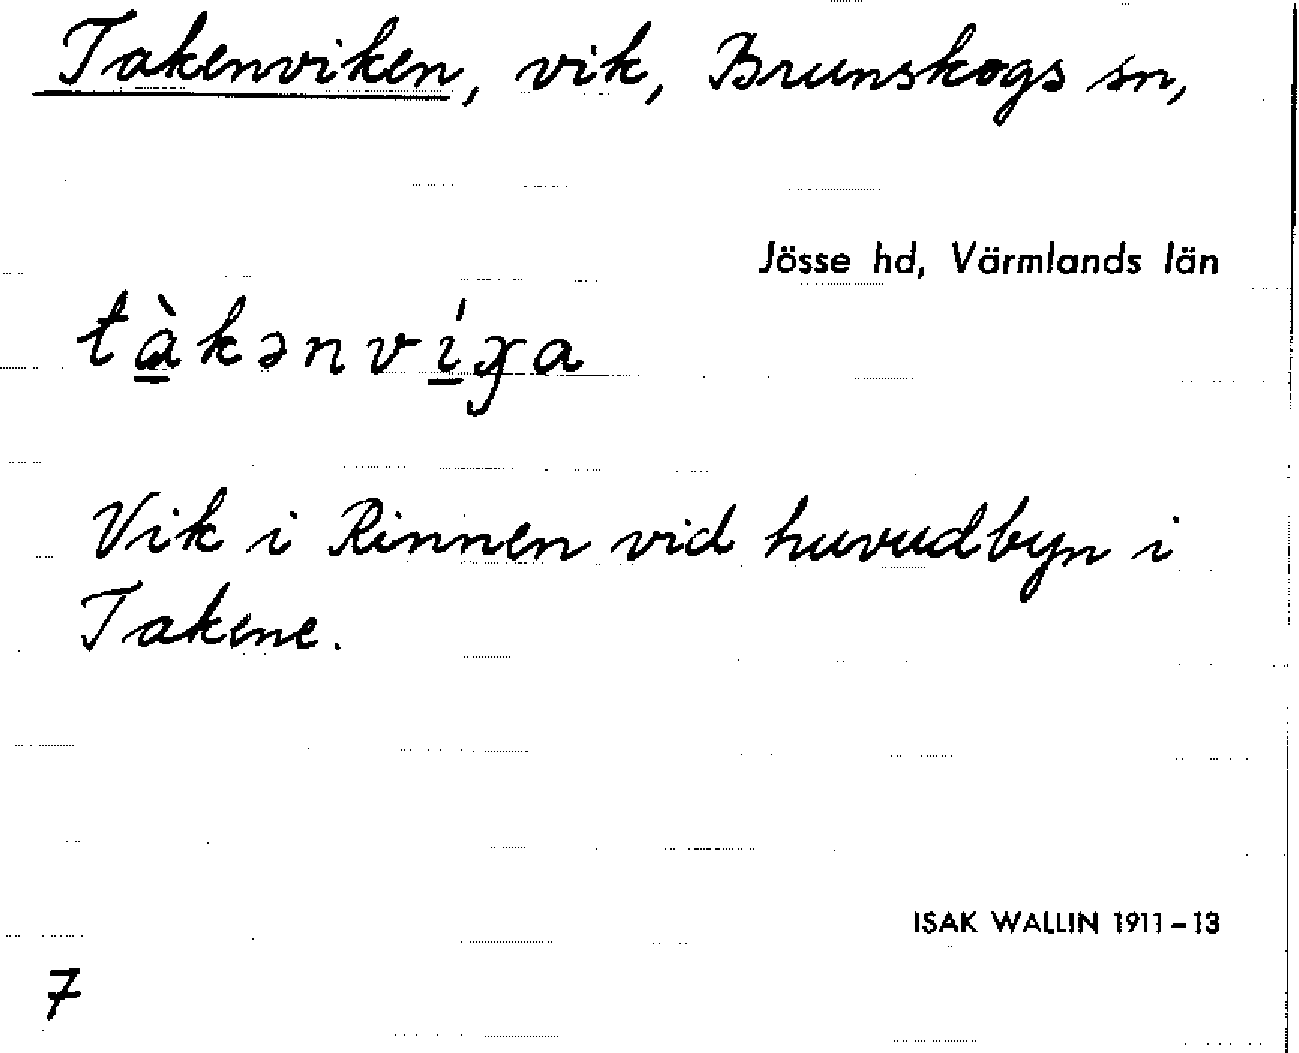 Takenviken, vik, Brunskogs sn,
Jösse hd, Värmlands län
tàkənvíɣa
Vik i Rinnen vid huvudbyn i
Takene.
ISAK WALLIN 1911–13
7